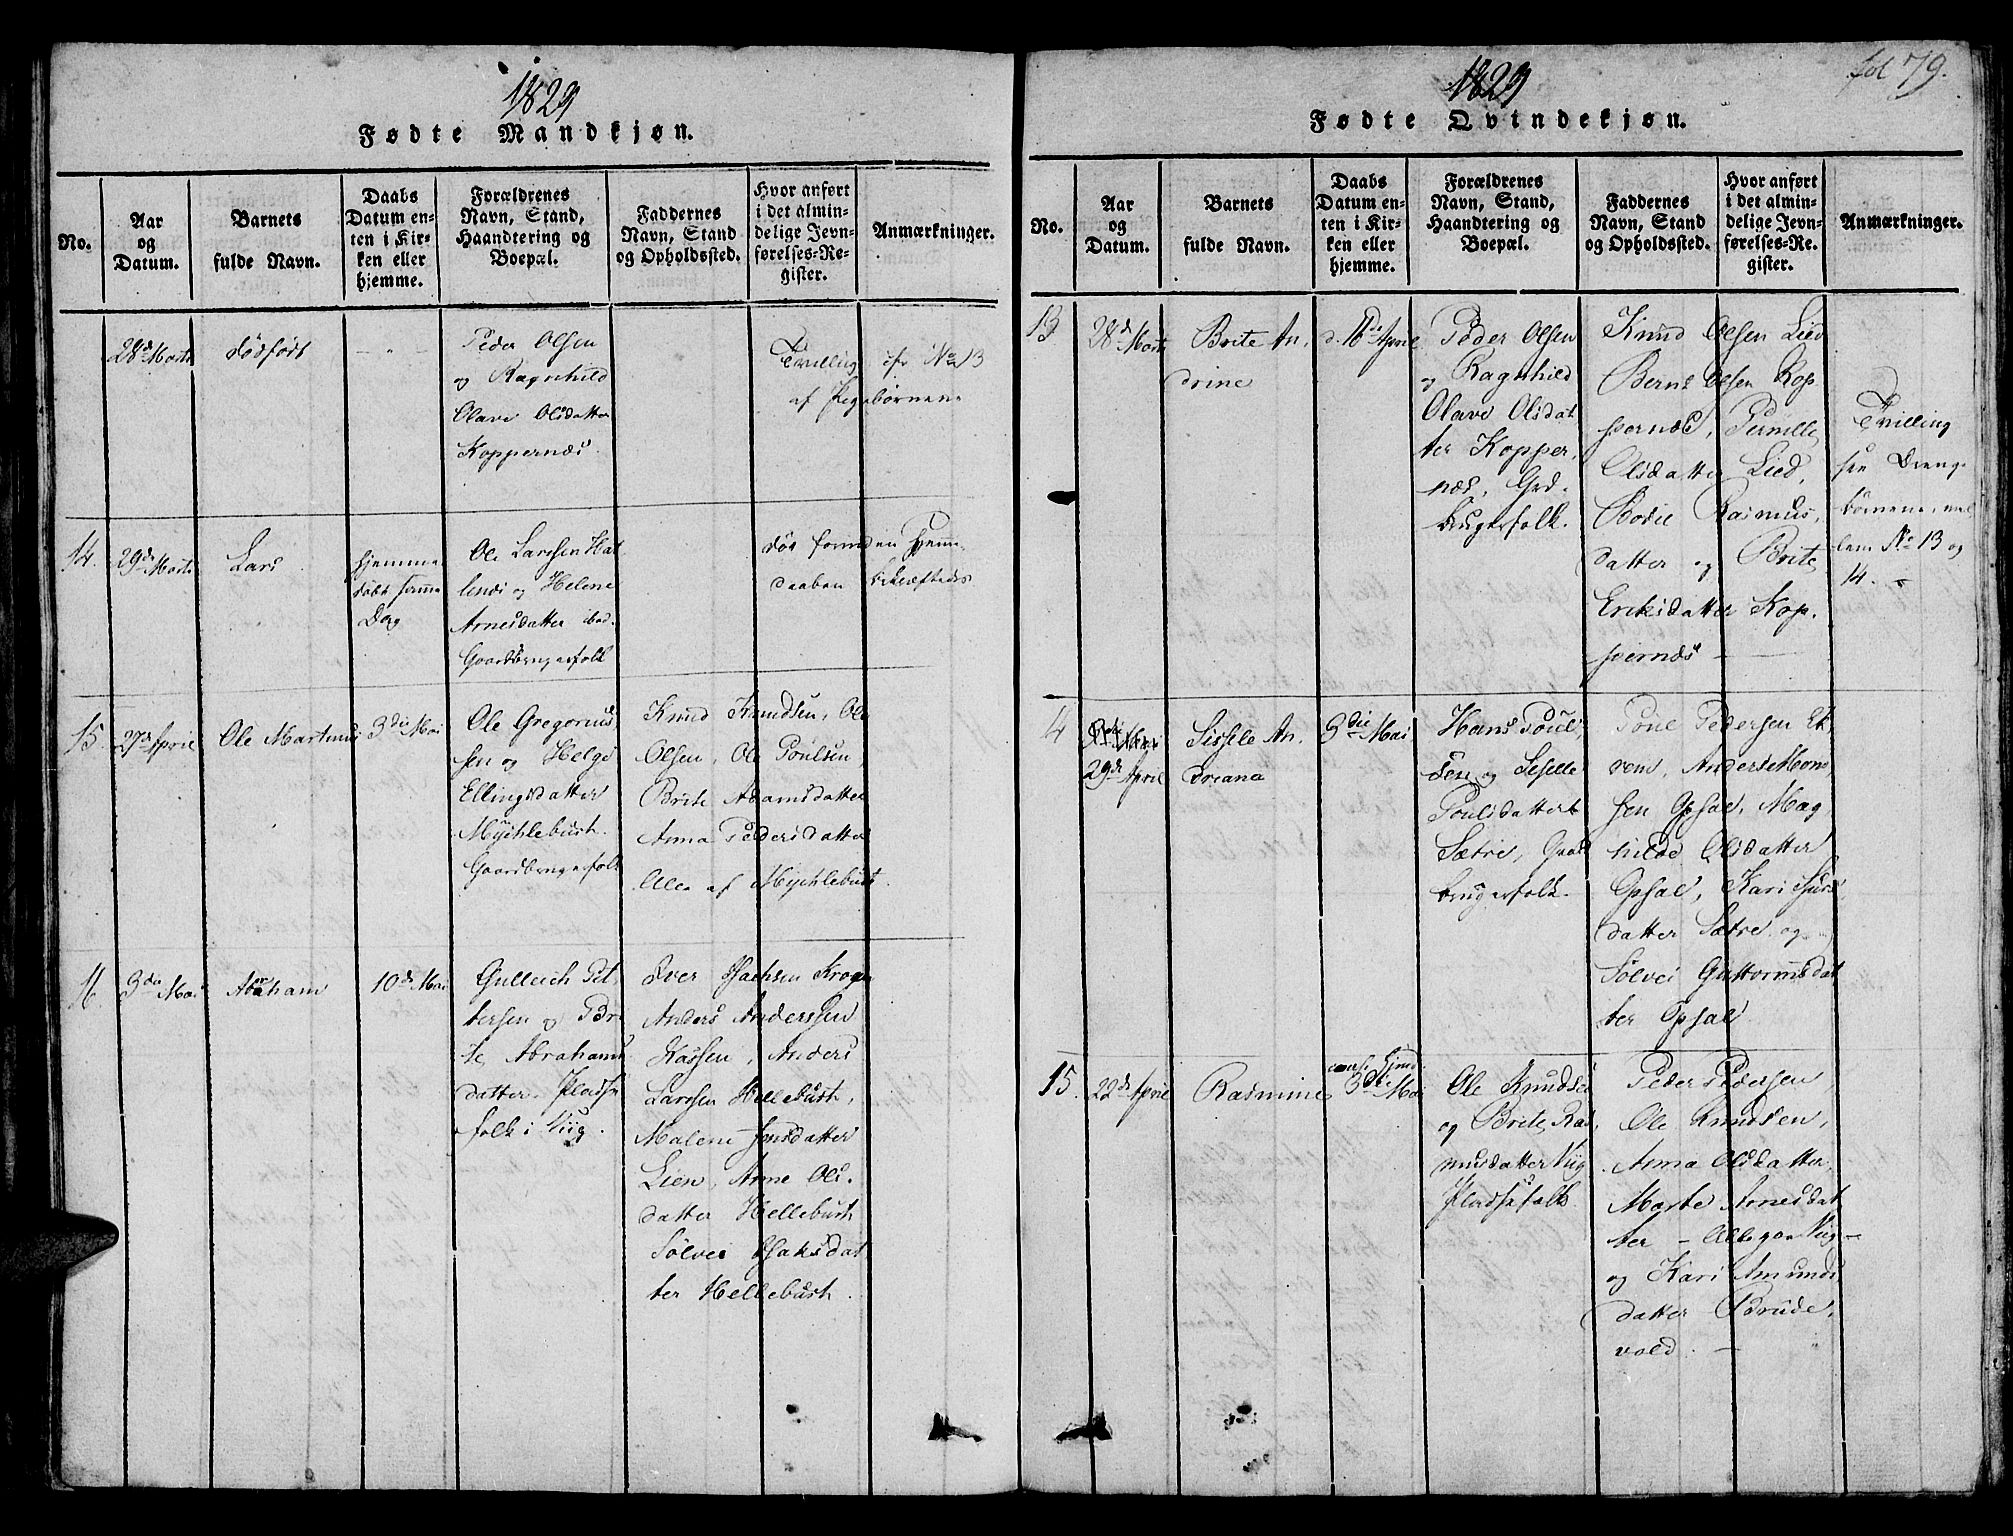 1829
Fødte Mandkjøn.
No.
Aar
og
Datum.
Barnets
fulde Navn.
Daabs
Datum en-
ten i Kir-
ken eller
hjemme.
Forældrenes
Navn, Stand,
Haandtering og
Boepæl.
Faddernes
Navn, Stand
og Opholdssted.
Hvor anført
i det almin-
delige Jevn-
førelses-Re-
gister.
Anmærkninger.
28de Marts
dødfødt
- " -
Peder Olsen
og Ragnhild
Olave Olsdatter
Koppernæs.
Tvilling
No 13
af Pigebørnene
14.
29de Marts
Lars
hjemme
døbt samme
Dag
Ole Larssen Hal
lenes og Helene
Arnesdatter ibd.
Gaardbrugerfolk
døe forinden Hjemme
daaben bekræftedes
15.
27de April
Ole Martinus
3die Mai
Ole Gregorius
sen og Helge
Ellingsdatter
Myhlebust.
Gaardbrugerfolk
Knud Knudsen, Ole
Olsen, Ole Poulsen,
Brite Adamsdatter
Anna Pedersdatter
Alle af Myhlebust.
16.
3die Mai
Abraham
10de Mai
Gullich Pet
tersen og Bri
te Abrahams
datter Pladse
folk i Viig.
Iver Isachsen Krogen
Anders Anderssen
Kassen, Anders
Larssen Hellebust,
Malene Jensdatter
Lien, Anne Ols
datter Hellebust
Sølvei Isaksdat
ter Hellebust.
fol 79.
1829
Fødte Qvindekjøn.
No.
Aar
og
Datum.
Barnets
fulde Navn.
Daabs
Datum en-
ten i Kir-
ken eller
hjemme.
Forældrenes
Navn, Stand,
Haandtering og
Boepæl.
Faddernes
Navn, Stand
og Opholdssted.
Hvor anført
i det almin-
delige Jevn-
førelses-Re-
gister.
Anmærkninger.
13
28de Marts
Brite An,
drine
April
Peder Olsen
og Ragnhild
Olave Olsdat
ter Kopper,
næs, Grd-
brugerfolk.
Knud Olsen Lied
Bernt Olsen Kop
pernæs, Pernille
Olsdatter Lied,
Bodil Rasmus,
datter og Brite
Eriksdatter Kop.
pernæs -
Tvilling
see Drenge
børnene, mel
lem No 13 og
14. -
14
29de April
Sissele An,
dreana
3die Mai
Hans Poul
sen og Siselle
Poulsdatter
Sætre, Gaard
brugerfolk.
Pone Pedersen Ek
rem, Anders Mon
sen Opsal, Mag
nilde Olsdatter
Opsal, Kari Siurs
datter Sætre og
Sølvei Guttormsdat
ter Opsal
15.
22de April
Rasmine
3die Mai
Ole Knudsen
og Brite Ras,
musdatter Viig
Pladsfolk
Peder Pedersen
Ole Knudsen,
Anna Olsdatter,
Marte Arnesdat
ter - Alle paa Viig -
og Kari Amunds
datter Brude,
vold. -